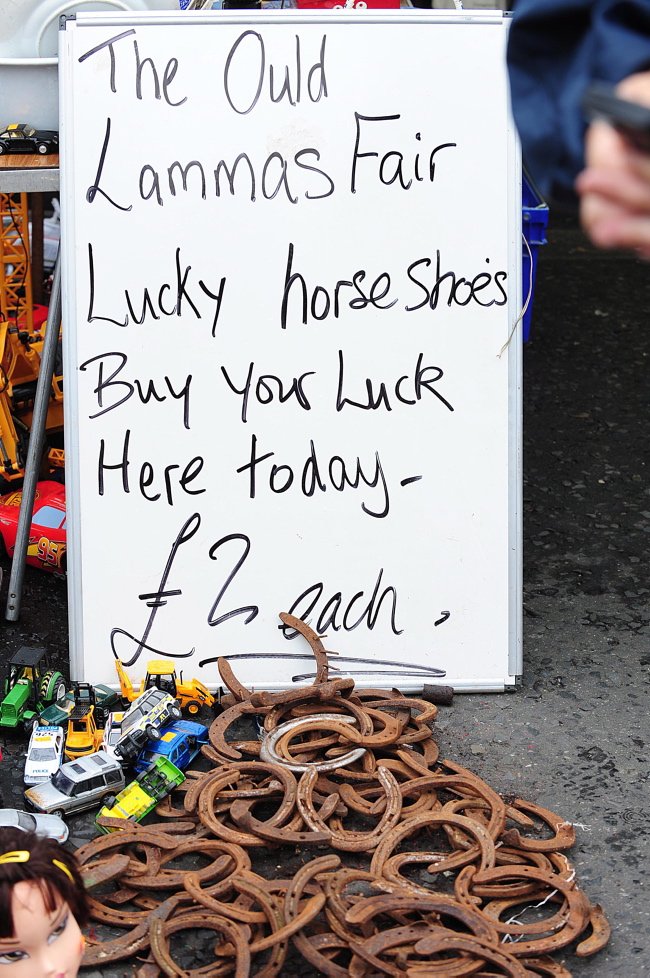 The Ould
Lammas Fair
Lucky horse Shoe's
Buy Your Luck
Here today -
£2 each.
95